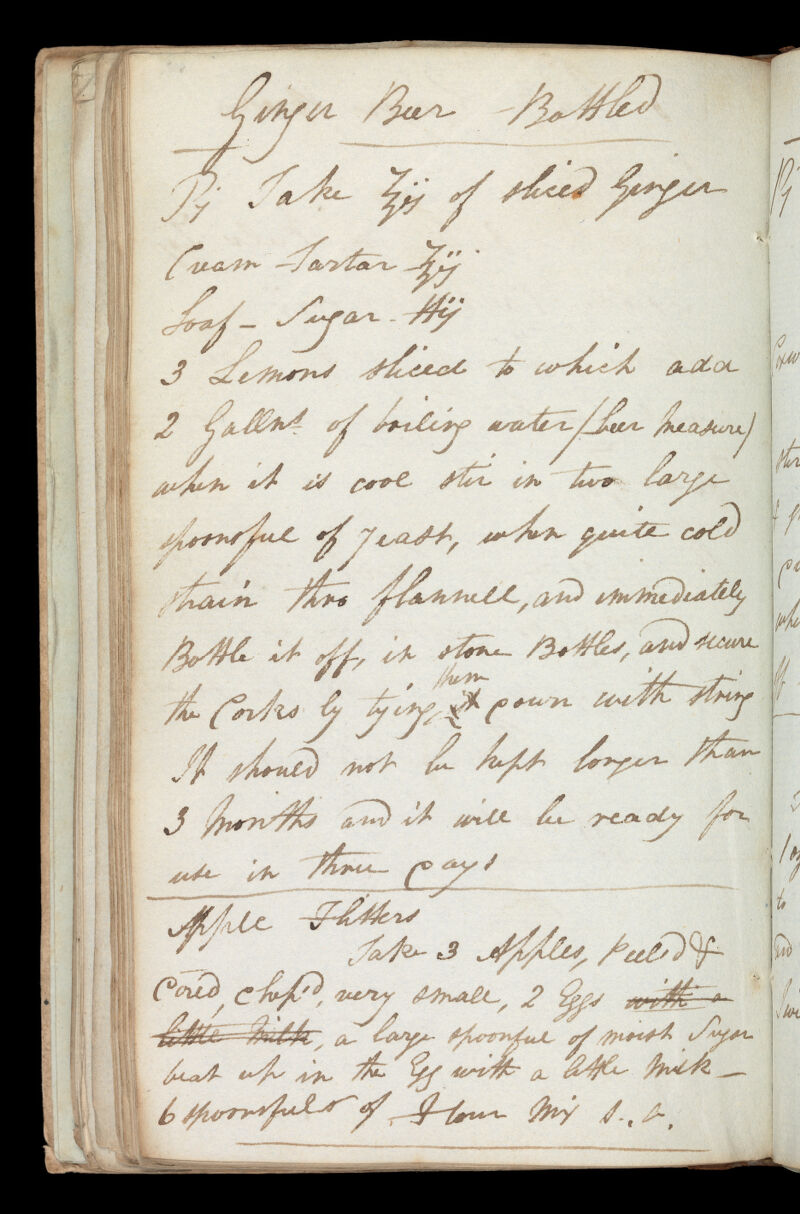 Ginger Beer - Bottled
℞ Take ℥ij of sliced Ginger
Cream Tartar ℥ij
Loaf - Sugar - ℔ij
3 Lemons sliced to which add
2 Galln.s of boiling water (beer measure)
when it is cool stir in two large
spoonsful of yeast, when quite cold
strain thro flannell, and immediately
Bottle it off, in stone Bottles, and secure
the Corks by tying them down with string
It should not be kept longer than
3 Months and it will be ready for
use in three days
Apple Fritters
Take 3 Apples, Peel'd &
Cored, chop'd, very small, 2 Eggs with a
little Milk, a large spoonful of moist Sugar
beat up in the Egg with a little Milk -
6 spoonsfuls of Flour Mix s. a.